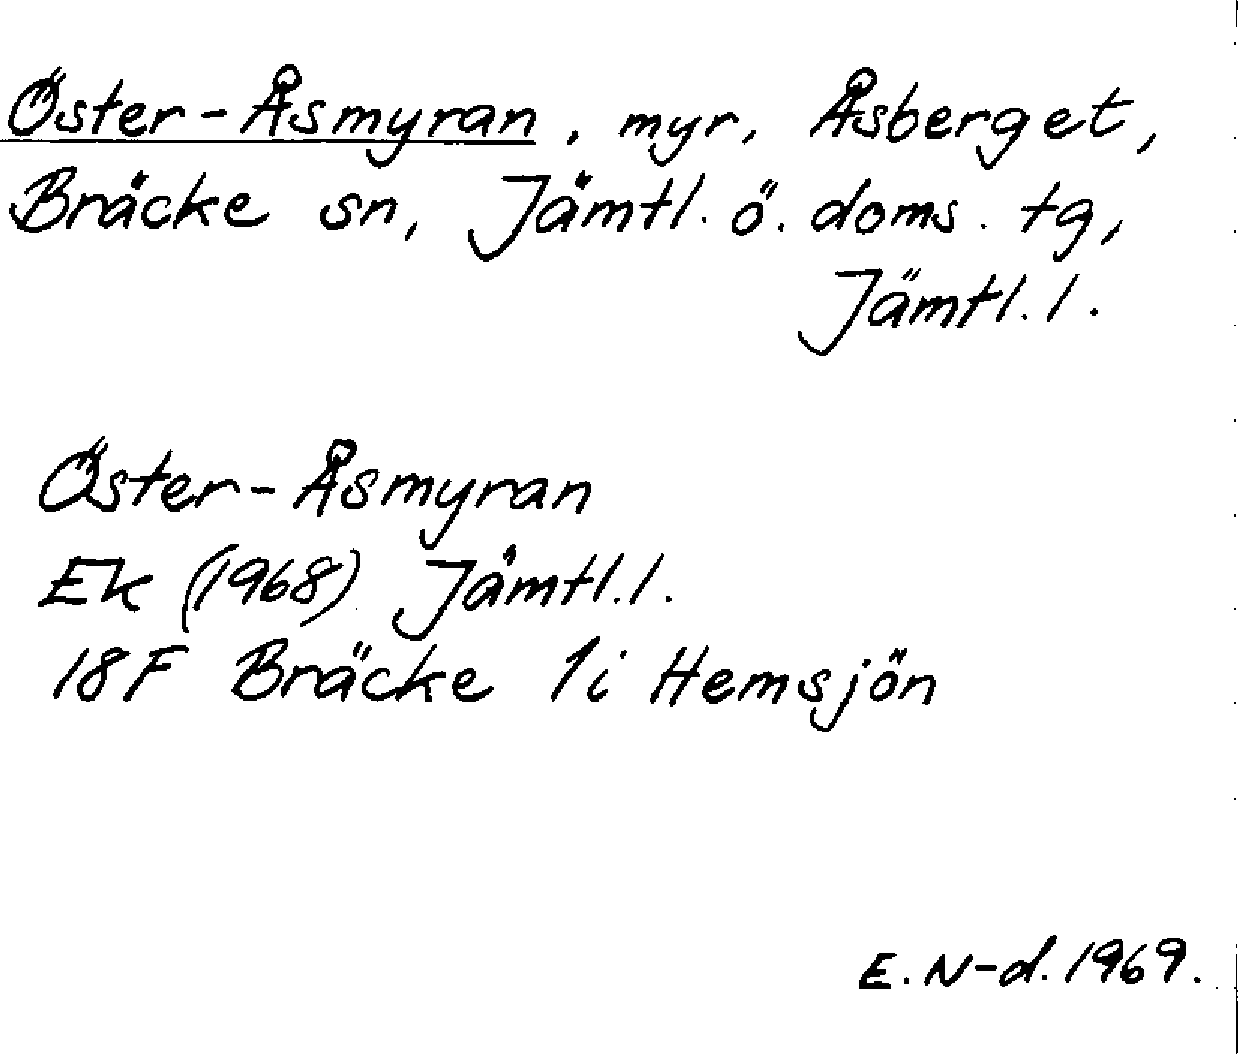 Öster-Åsmyran, myr, Åsberget,
Bräcke sn, Jämtl. ö. doms. tg,
Jämtl. l.
Öster-Åsmyran
Ek (1968) Jämtl. l.
18F Bräcke 1i Hemsjön
E. N-d. 1969.